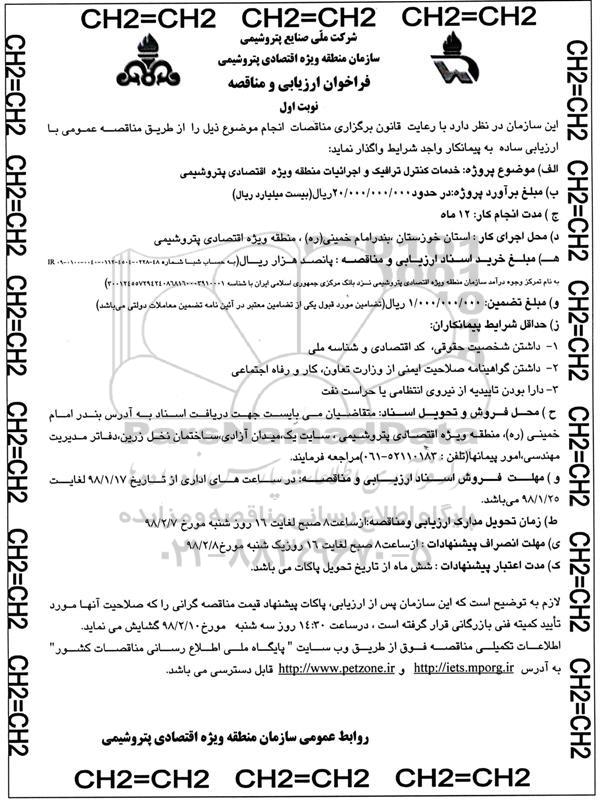 CH2=CH2 CH2=CH2 CH2=CH2
شرکت ملّی صنایع پتروشیمی
سازمان منطقه ویژه اقتصادی پتروشیمی
فراخوان ارزیابی و مناقصه
نوبت اول
این سازمان در نظر دارد با رعایت قانون برگزاری مناقصات انجام موضوع ذیل را از طریق مناقصه عمومی با
ارزیابی ساده به پیمانکار واجد شرایط واگذار نماید:
الف) موضوع پروژه: خدمات کنترل ترافیک و اجرائیات منطقه ویژه اقتصادی پتروشیمی
ب) مبلغ برآورد پروژه:در حدود۲۰/۰۰۰/۰۰۰/۰۰۰ریال(بیست میلیارد ریال)
ج ) مدت انجام کار: ۱۲ ماه
د) محل اجرای کار : استان خوزستان ،بندرامام خمینی(ره) ، منطقه ویژه اقتصادی پتروشیمی
هـ) مبلغ خرید اسناد ارزیابی و مناقصه : پانصد هزار ریال(به حساب شبا شماره
به نام تمرکز وجوه درآمد سازمان منطقه ویژه اقتصادی پتروشیمی نزد بانک مرکزی جمهوری اسلامی ایران با شناسه
و) مبلغ تضمین: ۱/۰۰۰/۰۰۰/۰۰۰ ریال(تضامین مورد قبول یکی از تضامین معتبر در آئین نامه تضمین معاملات دولتی می‌باشد)
ز) حداقل شرایط پیمانکاران:
۱- داشتن شخصیت حقوقی، کد اقتصادی و شناسه ملی
۲- داشتن گواهینامه صلاحیت ایمنی از وزارت تعاون، کار و رفاه اجتماعی
۳- دارا بودن تاییدیه از نیروی انتظامی یا حراست نفت
ح ) محل فروش و تحویل اسناد: متقاضیان می بایست جهت دریافت اسناد به آدرس بندر امام
خمینی (ره)، منطقه ویژه اقتصادی پتروشیمی ، سایت یک،میدان آزادی،ساختمان نخل زرین،دفاتر مدیریت
مهندسی،امور پیمانها(تلفن : ۵۲۱۱۰۱۸۳-۰۶۱)مراجعه فرمایند.
و ) مهلت فروش اسناد ارزیابی و مناقصه: در ساعت های اداری از تاریخ ۹۸/۱/۱۷ لغایت
۹۸/۱/۲۵ می‌باشد.
ط) زمان تحویل مدارک ارزیابی ومناقصه:ازساعت۸ صبح لغایت ۱۶ روز شنبه مورخ ۹۸/۲/۷
ی) مهلت انصراف پیشنهادات : ازساعت۸ صبح لغایت ۱۶ روزیک شنبه مورخ۹۸/۲/۸
ک) مدت اعتبار پیشنهادات : شش ماه از تاریخ تحویل پاکات می باشد.
لازم به توضیح است که این سازمان پس از ارزیابی، پاکات پیشنهاد قیمت مناقصه گرانی را که صلاحیت آنها مورد
تأیید کمیته فنی بازرگانی قرار گرفته است ، درساعت ۱۴:۳۰ روز سه شنبه مورخ۹۸/۲/۱۰ گشایش می نماید.
اطلاعات تکمیلی مناقصه فوق از طریق وب سایت " پایگاه ملی اطلاع رسانی مناقصات کشور"
به آدرس http://iets.mporg.ir و http://www.petzone.ir قابل دسترسی می باشد.
روابط عمومی سازمان منطقه ویژه اقتصادی پتروشیمی
CH2=CH2 CH2=CH2 CH2=CH2
CH2=CH2 CH2=CH2 CH2=CH2 CH2=CH2 CH2=CH2 CH2=CH2
CH2=CH2 CH2=CH2 CH2=CH2 CH2=CH2 CH2=CH2 CH2=CH2
ParsNamadData
پایگاه اطلاع رسانی مناقصه و مزایده
۰۲۱-۸۸۳۴۹۶۷۰-۵